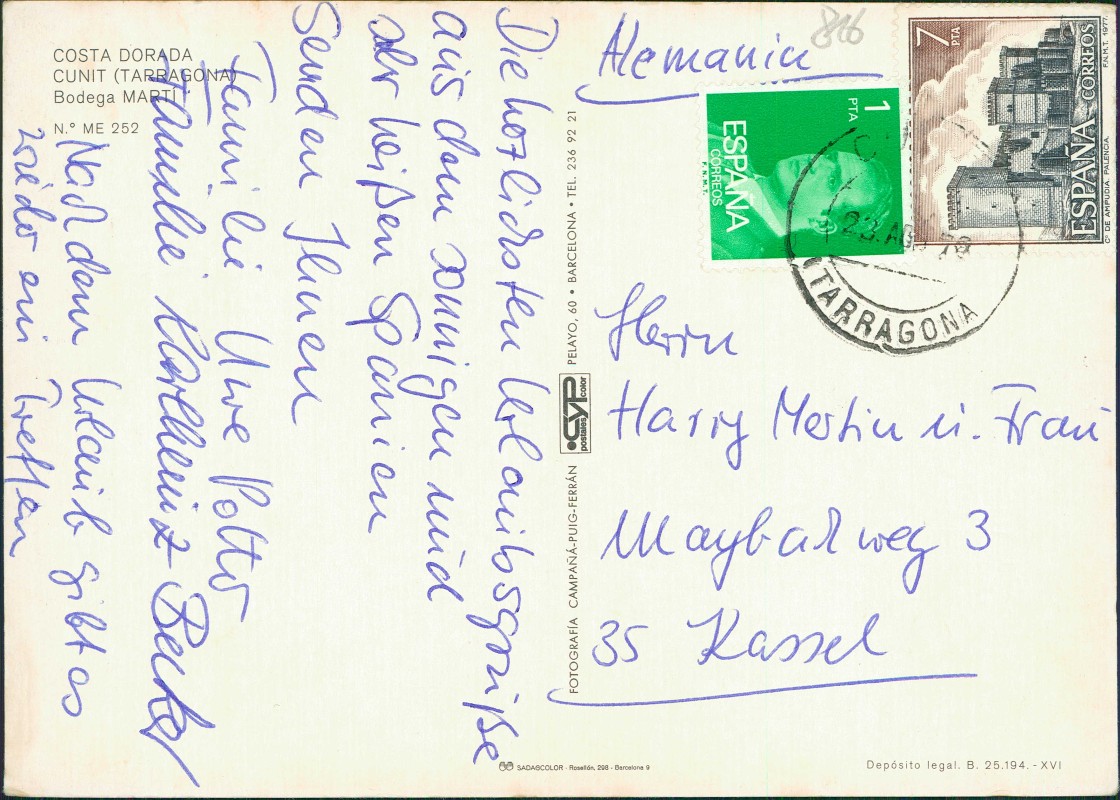 COSTA DORADA
CUNIT (TARRAGONA)
Bodega MARTÍ
N.º ME 252
Die herzlichsten Urlaubsgrüße
aus dem sonnigen und
der heißen Spanien
Senden Ihnen
Familie Uwe
Familie Karlheinz Becker
Nach dem Urlaub gibt es
wieder ein Treffen
FOTOGRAFÍA CAMPAÑÁ-PUIG-FERRÁN
CYP
postales color
PELAYO, 60 • BARCELONA • TEL. 236 92 21
SADAGCOLOR - Rosellón, 298 - Barcelona 9
Alemania
816
1 PTA
ESPAÑA
CORREOS
F.N.M.T.
7 PTA
ESPAÑA CORREOS
Cº DE AMPUDIA. PALENCIA. F.N.M.T. 1977.
23. AGO 78
TARRAGONA
Herrn
Harry Mertin u. Frau
Maybachweg 3
35 Kassel
Depósito legal. B. 25.194. - XVI